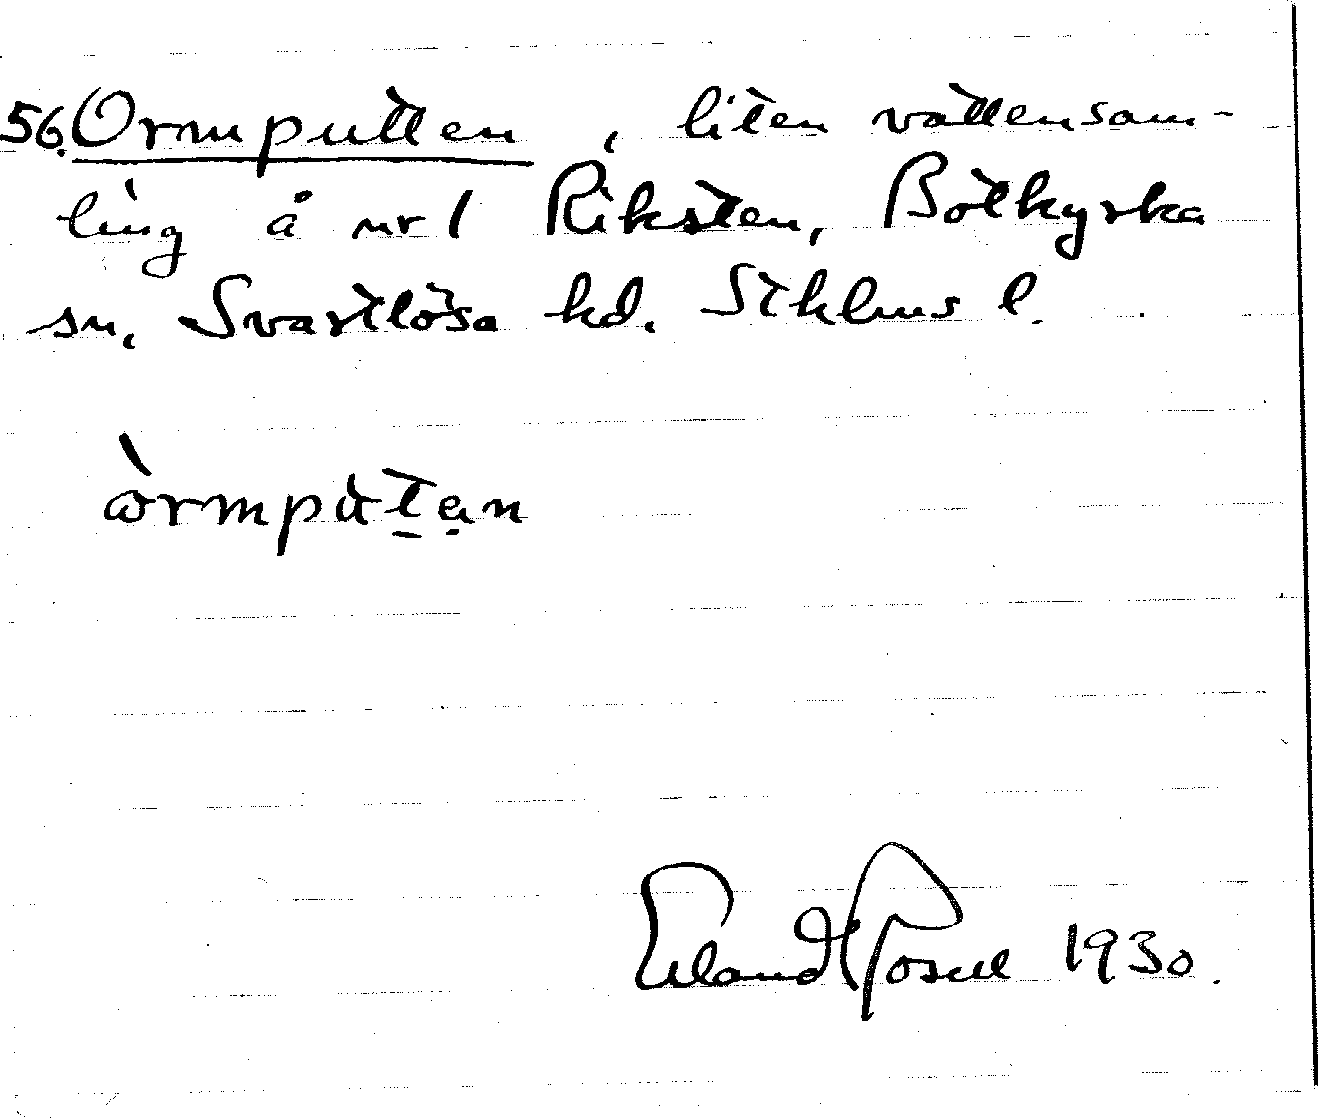 56. Ormputten, liten vattensam-
ling å nr 1 Riksten, Botkyrka
sn, Svartlösa hd. Sthlms l.
òrmpùt̠ạn
Erland Rosell 1930.